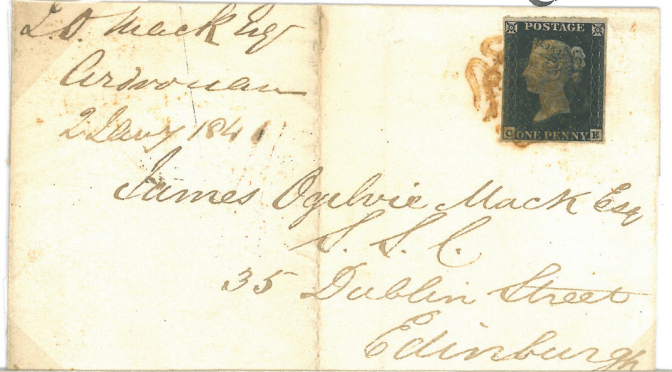 Mack Esq
2 Jany 1841
POSTAGE
C E
ONE PENNY
James Ogilvie Mack Esq
S. S. C.
35 Dublin Street
Edinburgh